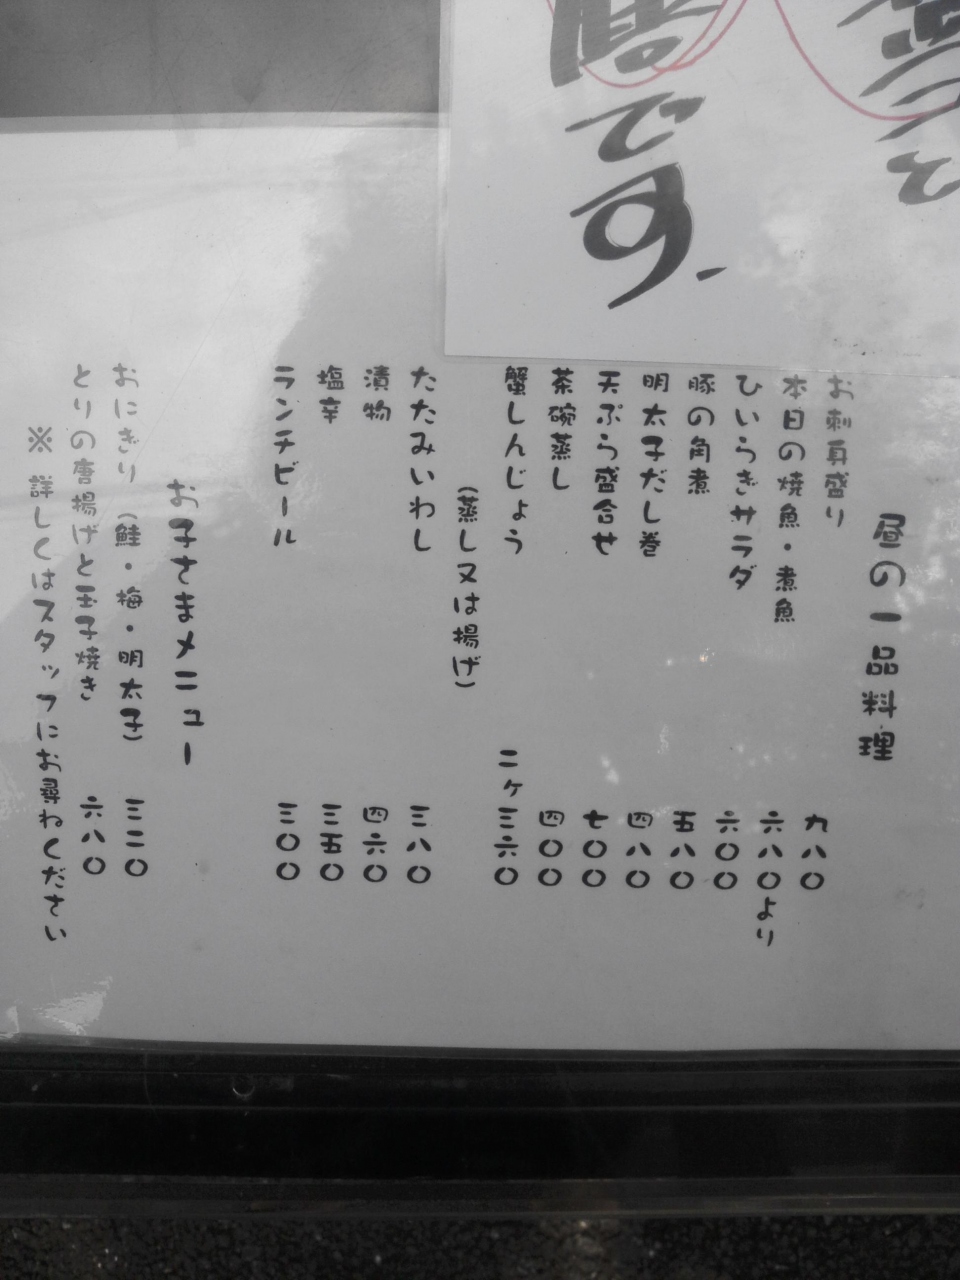 です。
昼の一品料理
お刺身盛り 九八〇
本日の焼魚・煮魚 六八〇より
ひいらぎサラダ 六〇〇
豚の角煮 五八〇
明太子だし巻 四八〇
天ぷら盛合せ 七〇〇
茶碗蒸し 四〇〇
蟹しんじょう 二ヶ三六〇
(蒸し又は揚げ)
たたみいわし 三八〇
漬物 四六〇
塩辛 三五〇
ランチビール 三〇〇
お子さまメニュー
おにぎり(鮭・梅・明太子) 三二〇
とりの唐揚げと玉子焼き 六八〇
※詳しくはスタッフにお尋ねください